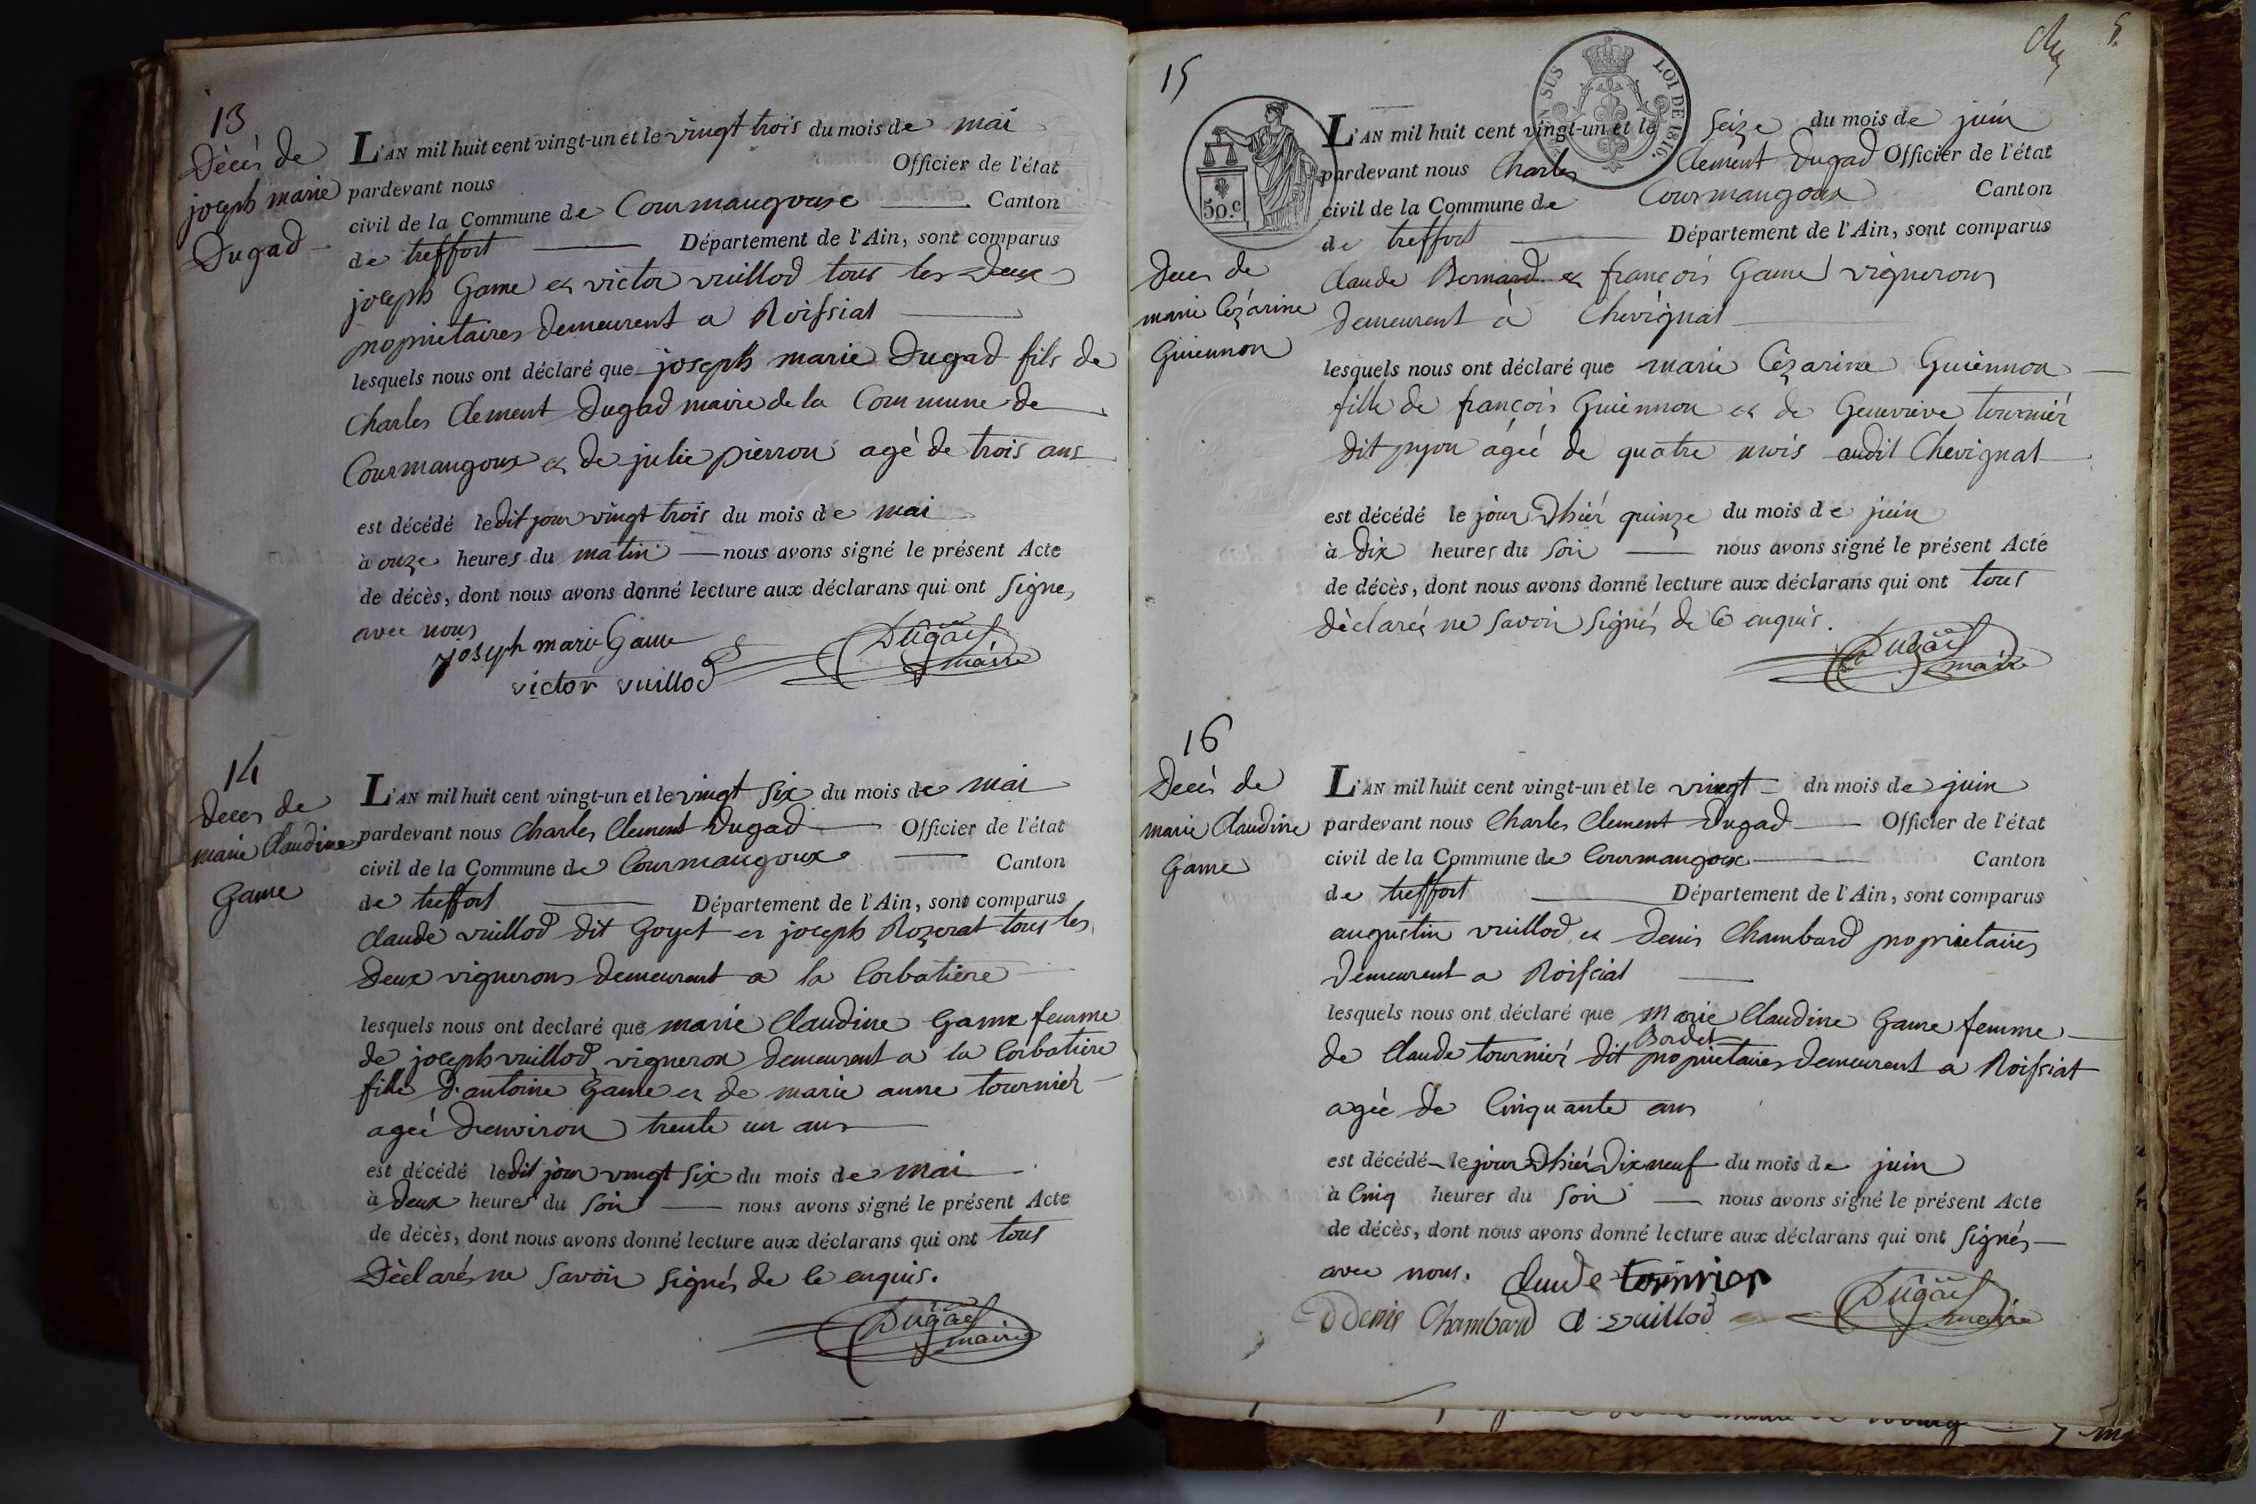 13
Décès de
joseph marie
Dugad
L'AN mil huit cent vingt-un et le vingt trois du mois de mai
pardevant nous Officier de l'état
civil de la Commune de Courmangoux Canton
de treffort Département de l'Ain, sont comparus
joseph Game et victor vuillod tous les deux
propriétaires demeurent a Roissiat
lesquels nous ont déclaré que joseph marie Dugad fils de
Charles Clement Dugad maire de la Commune de
Courmangoux et de julie pierron agé de trois ans
est décédé ledit jour vingt trois du mois de mai
à onze heures du matin nous avons signé le présent Acte
de décès, dont nous avons donné lecture aux déclarans qui ont signe
avec nous
joseph marie Game
victor vuillod
Dugad
maire
14
Deces de
marie Claudine
Game
L'AN mil huit cent vingt-un et le vingt six du mois de mai
pardevant nous Charles Clement Dugad Officier de l'état
civil de la Commune de Courmangoux Canton
de treffort Département de l'Ain, sont comparus
Claude vuillod dit Goyet et joseph Rozerat tous les
deux vignerons demeurent a la Corbatiere
lesquels nous ont declaré que marie Claudine Game femme
de joseph vuillod vigneron demeurent a la Corbatiere
fille d'antoine Game et de marie anne tournier
agée d'environ trente un ans
est décédé ledit jour vingt six du mois de mai
à deux heures du soir nous avons signé le présent Acte
de décès, dont nous avons donné lecture aux déclarans qui ont tous
Déclarés ne savoir signés de ce enquis.
Dugad
maire
5.
15
SUS
LOI DE 1816.
50.c
Deces de
marie Cézarine
Guiennon
L'AN mil huit cent vingt-un et le Seize du mois de juin
pardevant nous Charles Clement Dugad Officier de l'état
civil de la Commune de Courmangoux Canton
de treffort Département de l'Ain, sont comparus
Claude Bernard et françois Game vignerons
demeurent à Chevignat
lesquels nous ont déclaré que marie Cézarine Guiennon
fille de françois Guiennon et de Genevieve tournier
dit agée de quatre mois audit Chevignat
est décédé le jour d'hiér quinze du mois de juin
à dix heures du soir nous avons signé le présent Acte
de décès, dont nous avons donné lecture aux déclarans qui ont tous
déclarés ne savoir signés de ce enquis.
Dugad
maire
16
Decès de
marie Claudine
Game
L'AN mil huit cent vingt-un et le vingt du mois de juin
pardevant nous Charles Clement Dugad Officier de l'état
civil de la Commune de Courmangoux Canton
de treffort Département de l'Ain, sont comparus
augustin vuillod et Denis Chambard proprietaires
demeurent a Roissiat
lesquels nous ont déclaré que Marie Claudine Game femme
Bordet
de Claude tournier dit proprietaires demeurent a Roissiat
agée de Cinquante ans
est décédé le jour d'hiér dix neuf du mois de juin
à Cinq heures du soir nous avons signé le présent Acte
de décès, dont nous avons donné lecture aux déclarans qui ont signés
avec nous.
Denis Chambard A vuillod
Dugad
maire